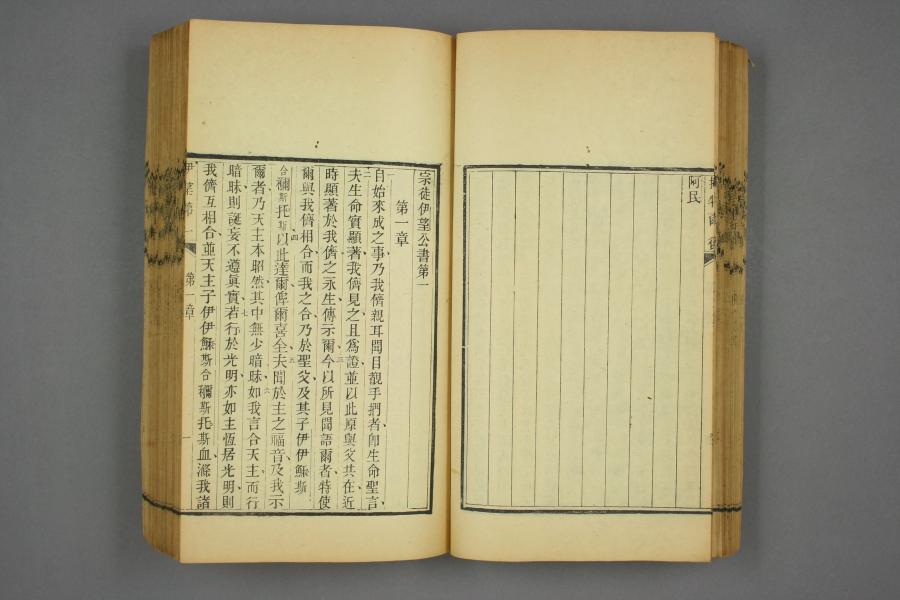 阿民
宗徒伊望公書第一
第一章
一自始來成之事、乃我儕親耳聞目覩手捫者、卽生命聖言、
二夫生命實顯著、我儕見之、且爲證、並以此原與父共在、近
時顯著於我儕之永生、傳示爾、三今以所見聞語爾者、特使
爾與我儕相合、四而我之合、乃於聖父及其子伊伊穌斯
合穪斯托斯、以此達爾、俾爾喜全、五夫聞於主之福音、及我示
爾者、乃天主本昭然、其中無少暗昧、六如我言合天主、而行
暗昧、則誕妄不遵眞實、七若行於光明、亦如主恆居光明、則
我儕互相合、並天主子伊伊穌斯合穪斯托斯血、滌我諸
伊望第一 第一章 一